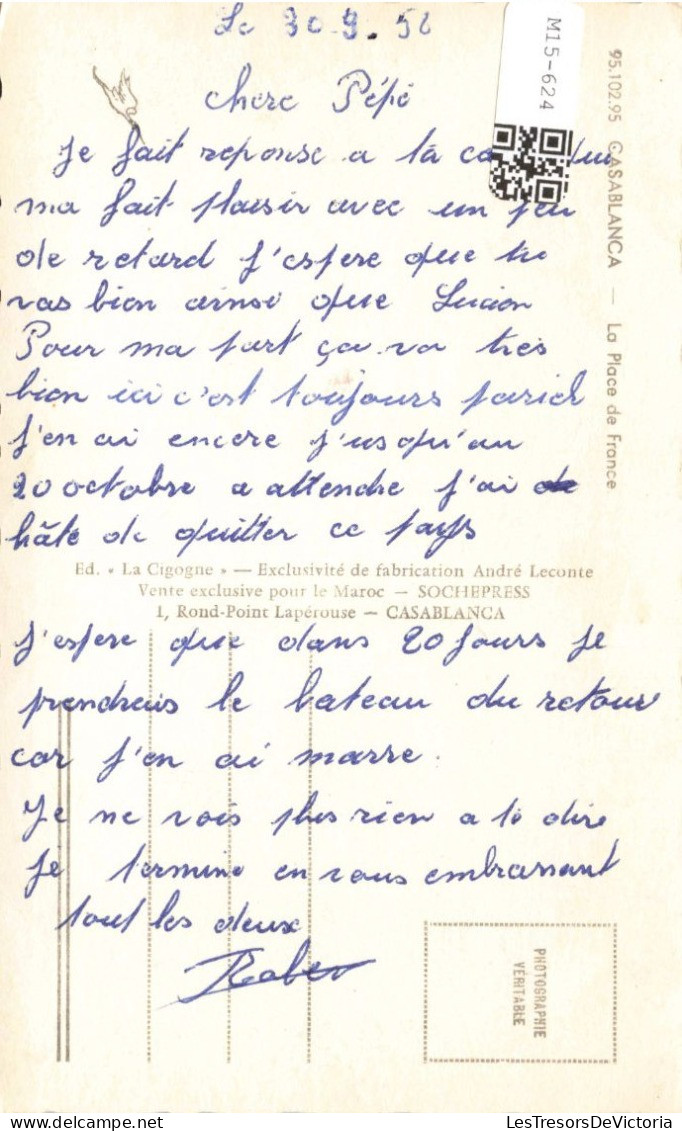 Le 30.9.52
chere Pépé
Je fait reponse a ta
ma fait plaisir avec un peu
de retard j'espere que tu
vas bien ainsi que Lucien
Pour ma part ça va tres
bien ici c'est toujours pariel
j'en ai encere j'usqu'au
20 octobre a attendre j'ai de
hâte de quitter ce pays
Ed. « La Cigogne » — Exclusivité de fabrication André Leconte
Vente exclusive pour le Maroc — SOCHEPRESS
1, Rond-Point Lapérouse — CASABLANCA
j'espere que dans 20 jours je
prendrais le bateau du retour
car j'en ai marre.
Je ne vois plus rien a te dire
je termine en vous embrassant
tout les deux
PHOTOGRAPHIE
VÉRITABLE
M15-624
95.102.95 CASABLANCA — La Place de France
LesTresorsDeVictoria